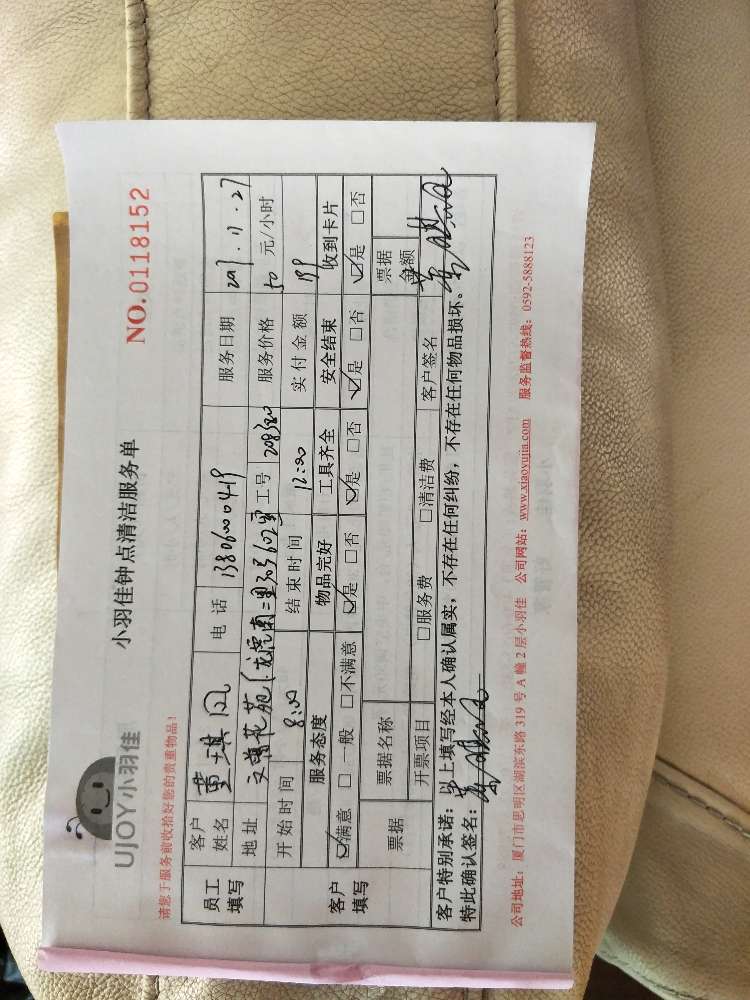 UJOY小羽佳
小羽佳钟点清洁服务单
NO.0118152
请您于服务前收拾好您的贵重物品!
员工填写 客户姓名 董琪凤 电话 13806000419 服务日期 2017.11.27
地址 文 花苑(龙虎南二里 602室 工号 服务价格 50 元/小时
开始时间 8:00 结束时间 12:00 实付金额
客户填写 服务态度 物品完好 工具齐全 安全结束 收到卡片
☑满意 □一般 □不满意 ☑是 □否 ☑是 □否 ☑是 □否 ☑是 □否
票据 票据名称 票据金额
开票项目 □服务费 □清洁费 客户签名
客户特别承诺:以上填写经本人确认属实,不存在任何纠纷,不存在任何物品损坏。
特此确认签名:
公司地址:厦门市思明区湖滨东路 319 号 A 幢 2 层小羽佳 公司网站:www.xiaoyujia.com 服务监督热线:0592-5888123